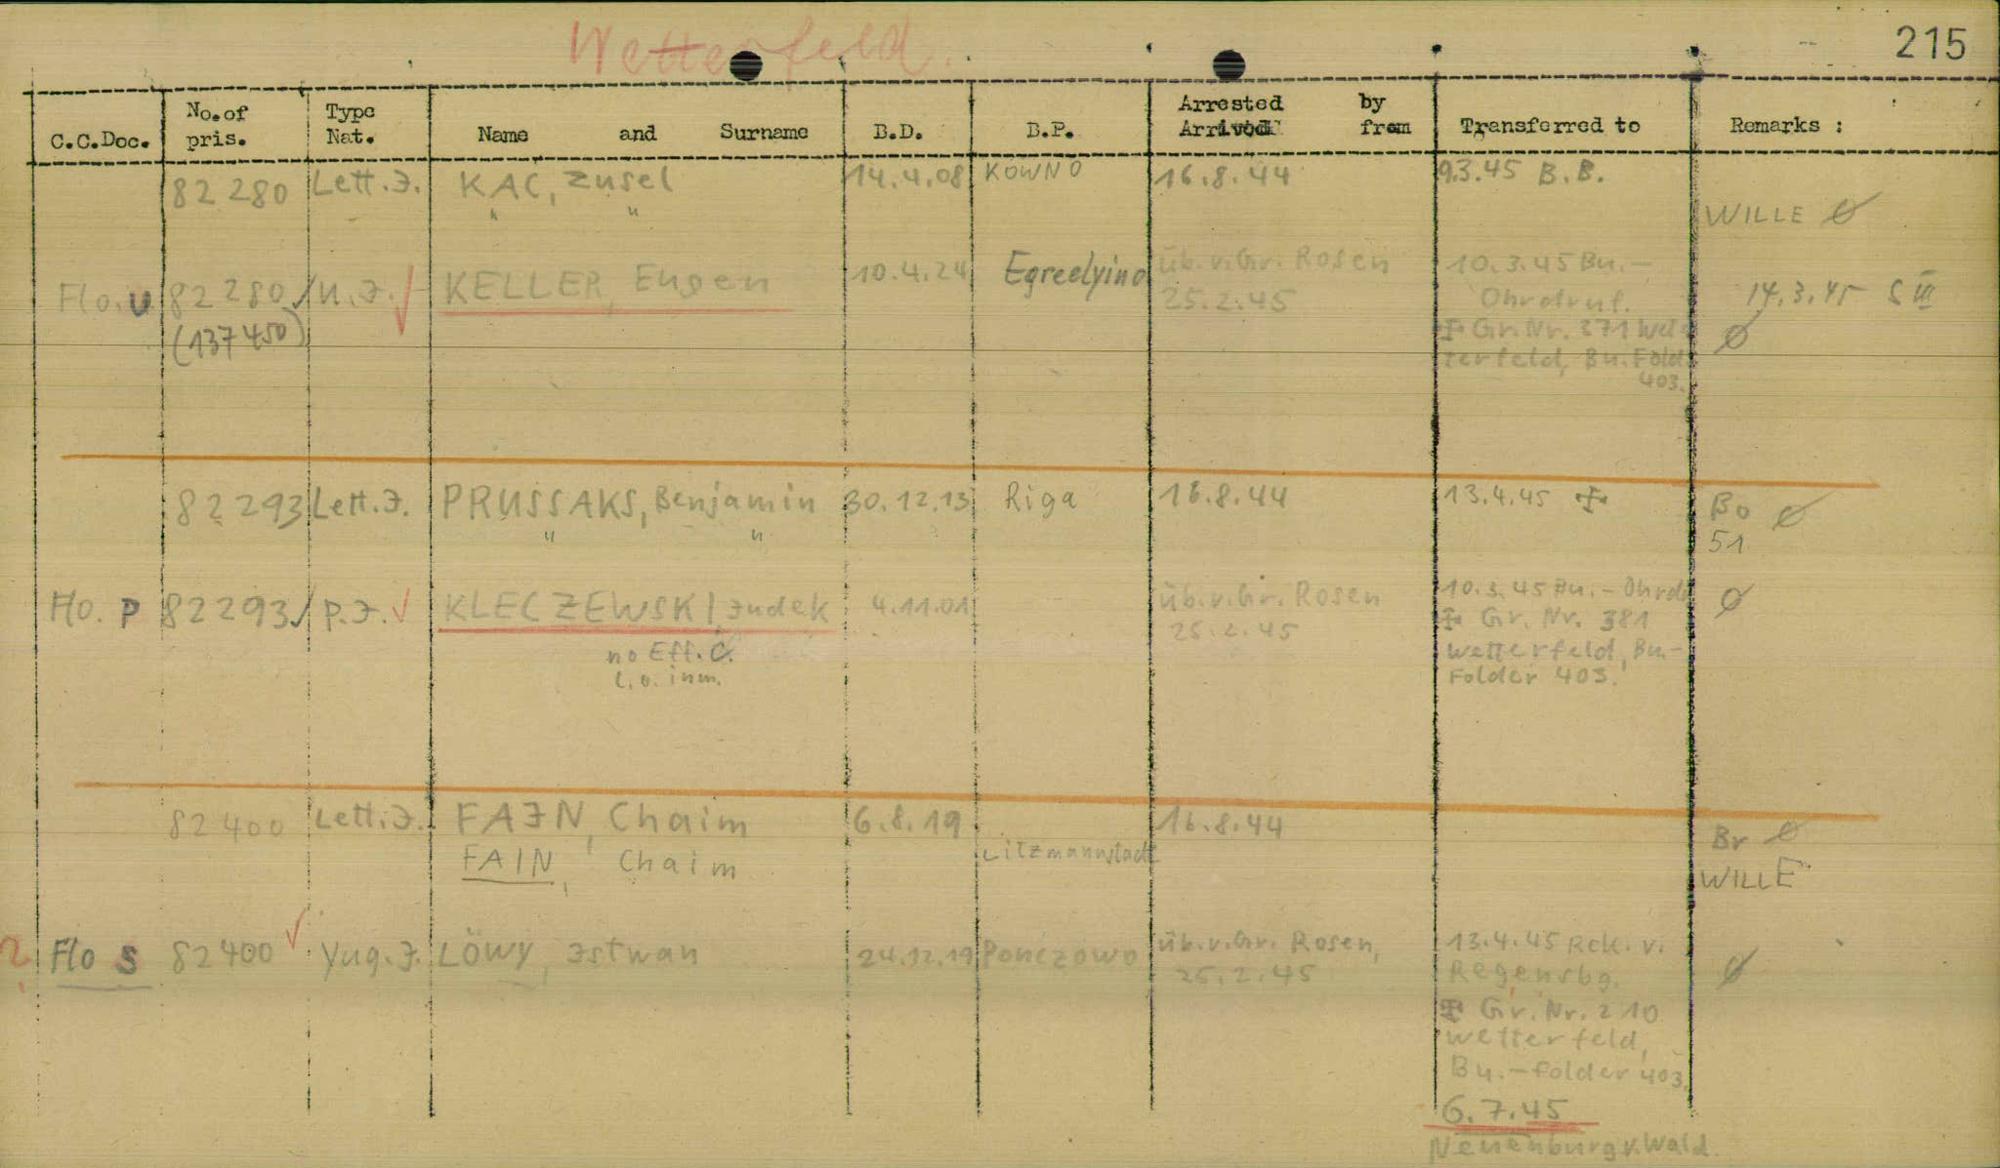 Wetterfeld.
215
C.C.Doc. No.of pris. Type Nat. Name and Surname B.D. B.P. Arrested by Arrived from Transferred to Remarks :
82 280 Lett.J. KAC, Zusel 14.4.08 KOWNO 16.8.44 9.3.45 B.B.
" "
WILLE Ø
Flo. U 82 280/ U.J. KELLER, Eugen 10.4.24 Egreelyino üb.v.Gr. Rosen 10.3.45 Bu.-
(137450) 25.2.45 Ohrdruf. 14.3.45 S III
✠ Gr.Nr. 371 Wet- Ø
terfeld, Bu. Fold.
403.
82 293 Lett.J. PRUSSAKS, Benjamin 30.12.13 Riga 16.8.44 13.4.45 ✠ Bo Ø
" " 51
Flo. P 82 293/ P.J. KLECZEWSKI, Judek 4.11.01 üb.v.Gr. Rosen 10.3.45 Bu.- Ohrd Ø
25.2.45 ✠ Gr. Nr. 381
no Eff.C. Wetterfeld, Bu.-
l.o. inm. Folder 403.
82 400 Lett.J. FAJN, Chaim 6.8.19 16.8.44 Br Ø
FAIN, Chaim Litzmannstadt WILLE
? Flo S 82 400 Yug.J. LÖWY, Istwan 24.12.19 Ponczowo üb.v.Gr. Rosen, 13.4.45 Rck. v.
25.2.45 Regensbg. Ø
✠ Gr. Nr. 210
Wetterfeld,
Bu.-Folder 403.
6.7.45
Neuenburg v. Wald.